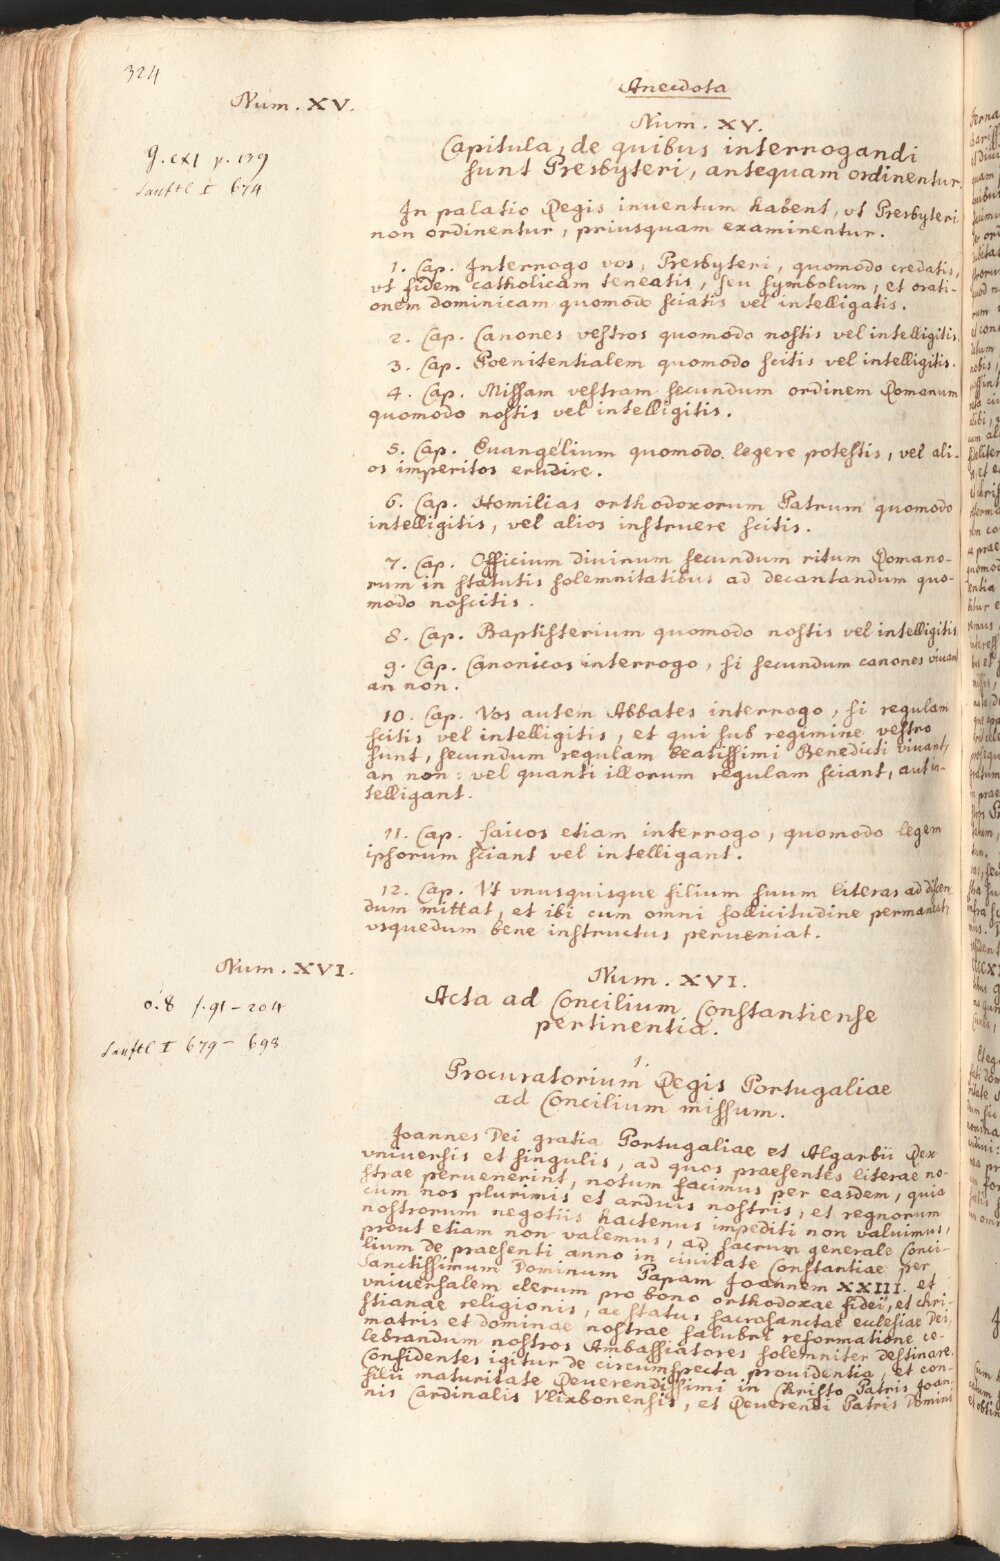 324
Anecdota
Num. XV.
Num. XV.
Capitula, de quibus interrogandi
sunt Presbyteri, antequam ordinentur.
g. CXI p. 139
Lanftl I 674
In palatio Regis inventum habent, vt Presbyteri
non ordinentur, priusquam examinentur.
1. Cap. Interrogo vos, Presbyteri, quomodo credatis,
vt fidem catholicam teneatis, seu symbolum, et orati-
onem dominicam quomodo sciatis vel intelligatis.
2. Cap. Canones vestros quomodo nostis vel intelligitis.
3. Cap. Poenitentialem quomodo scitis vel intelligitis.
4. Cap. Missam vestram secundum ordinem Romanum
quomodo nostis vel intelligitis.
5. Cap. Euangelium quomodo legere potestis, vel ali-
os imperitos erudire.
6. Cap. Homilias orthodoxorum Patrum quomodo
intelligitis, vel alios instruere scitis.
7. Cap. Officium diuinum secundum ritum Romano-
rum in statutis solemnitatibus ad decantandum quo-
modo noscitis.
8. Cap. Baptisterium quomodo nostis vel intelligitis
9. Cap. Canonicos interrogo, si secundum canones viuant
an non.
10. Cap. Vos autem Abbates interrogo, si regulam
scitis vel intelligitis, et qui sub regimine vestro
sunt, secundum regulam beatissimi Benedicti viuant,
an non: vel quanti illorum regulam sciant, aut in-
telligant.
11. Cap. Laicos etiam interrogo, quomodo legem
ipsorum sciant vel intelligant.
12. Cap. Vt vnusquisque filium suum literas ad discen
dum mittat, et ibi cum omni sollicitudine permaneat,
vsquedum bene instructus perueniat.
Num. XVI.
Num. XVI.
Acta ad Concilium Constantiense
pertinentia.
o. 8 f. 91 - 204
Lanftl I 679 - 698
1.
Procuratorium Regis Portugaliae
ad Concilium missum.
Joannes Dei gratia Portugaliae et Algarbii Rex
vniuersis et singulis, ad quos praesentes literae no-
strae peruenerint, notum facimus per easdem, quia
cum nos plurimis et arduis nostris, et regnorum
nostrorum negotiis hactenus impediti non valuimus,
prout etiam non valemus, ad sacrum generale Conci-
lium de praesenti anno in ciuitate Constantiae per
Sanctissimum Dominum Papam Joannem XXIII. et
vniuersalem clerum pro bono orthodoxae fidei, et Chri-
stianae religionis, ac status sacrosanctae ecclesiae Dei,
matris et dominae nostrae salubri reformatione ce-
lebrandum nostros Ambassiatores solemniter destinare.
Confidentes igitur de circumspecta prouidentia, et con-
silii maturitate Reuerendissimi in Christo Patris Joan-
nis Cardinalis Vlixbonensis, et Reuerendi Patris Domini